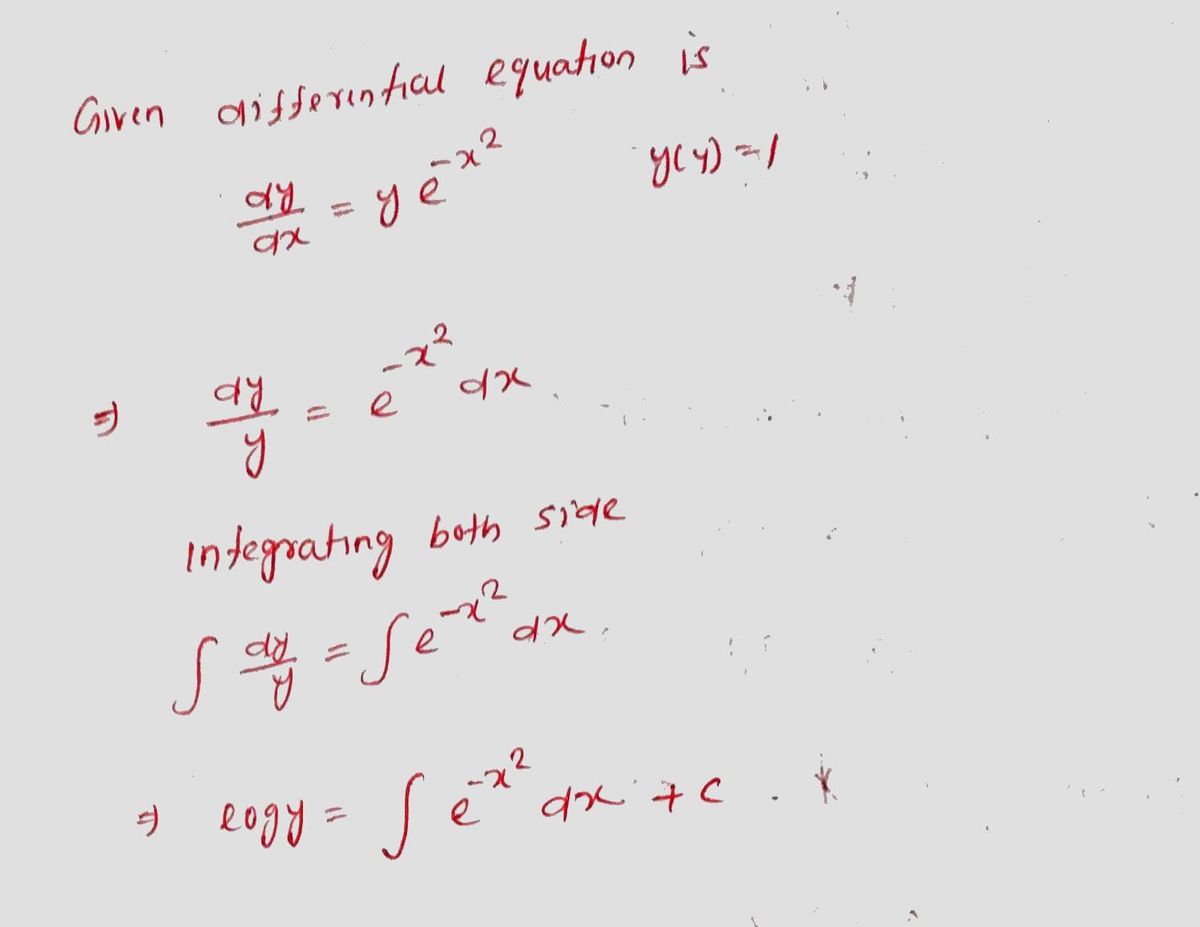 Given differential equation is
dy/dx = y e^{-x^2} y(4) = 1
⇒ dy/y = e^{-x^2} dx
Integrating both side
∫ dy/y = ∫ e^{-x^2} dx
⇒ logy = ∫ e^{-x^2} dx + c .